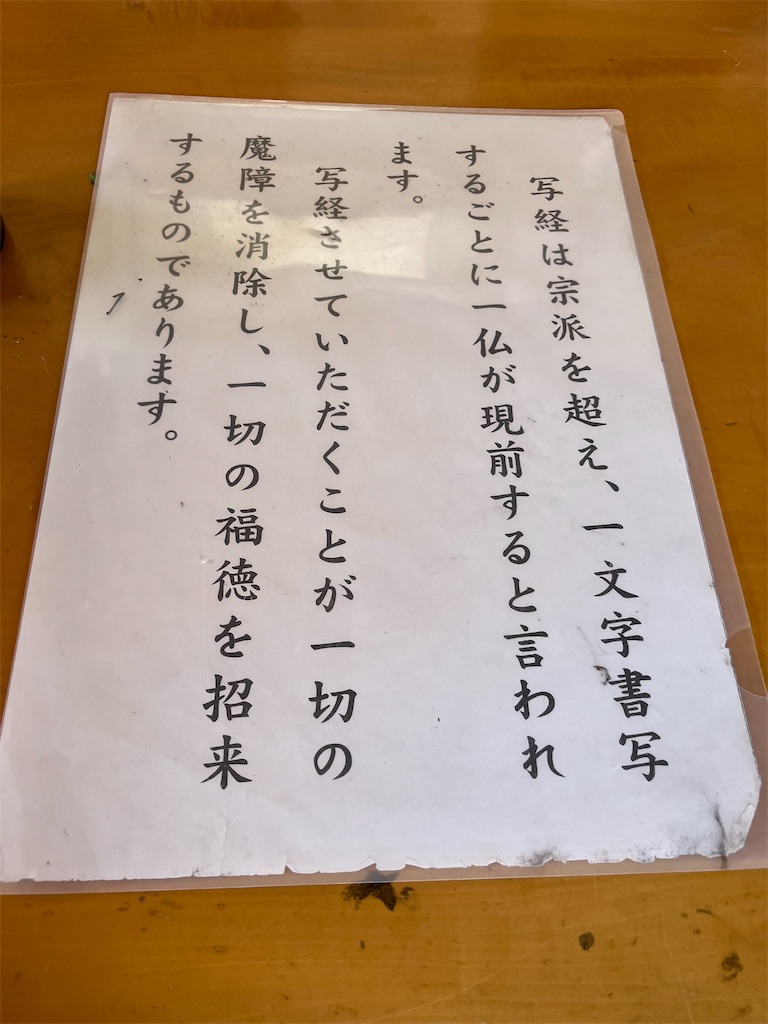 写経は宗派を超え、一文字書写
するごとに一仏が現前すると言われ
ます。
写経させていただくことが一切の
魔障を消除し、一切の福徳を招来
するものであります。